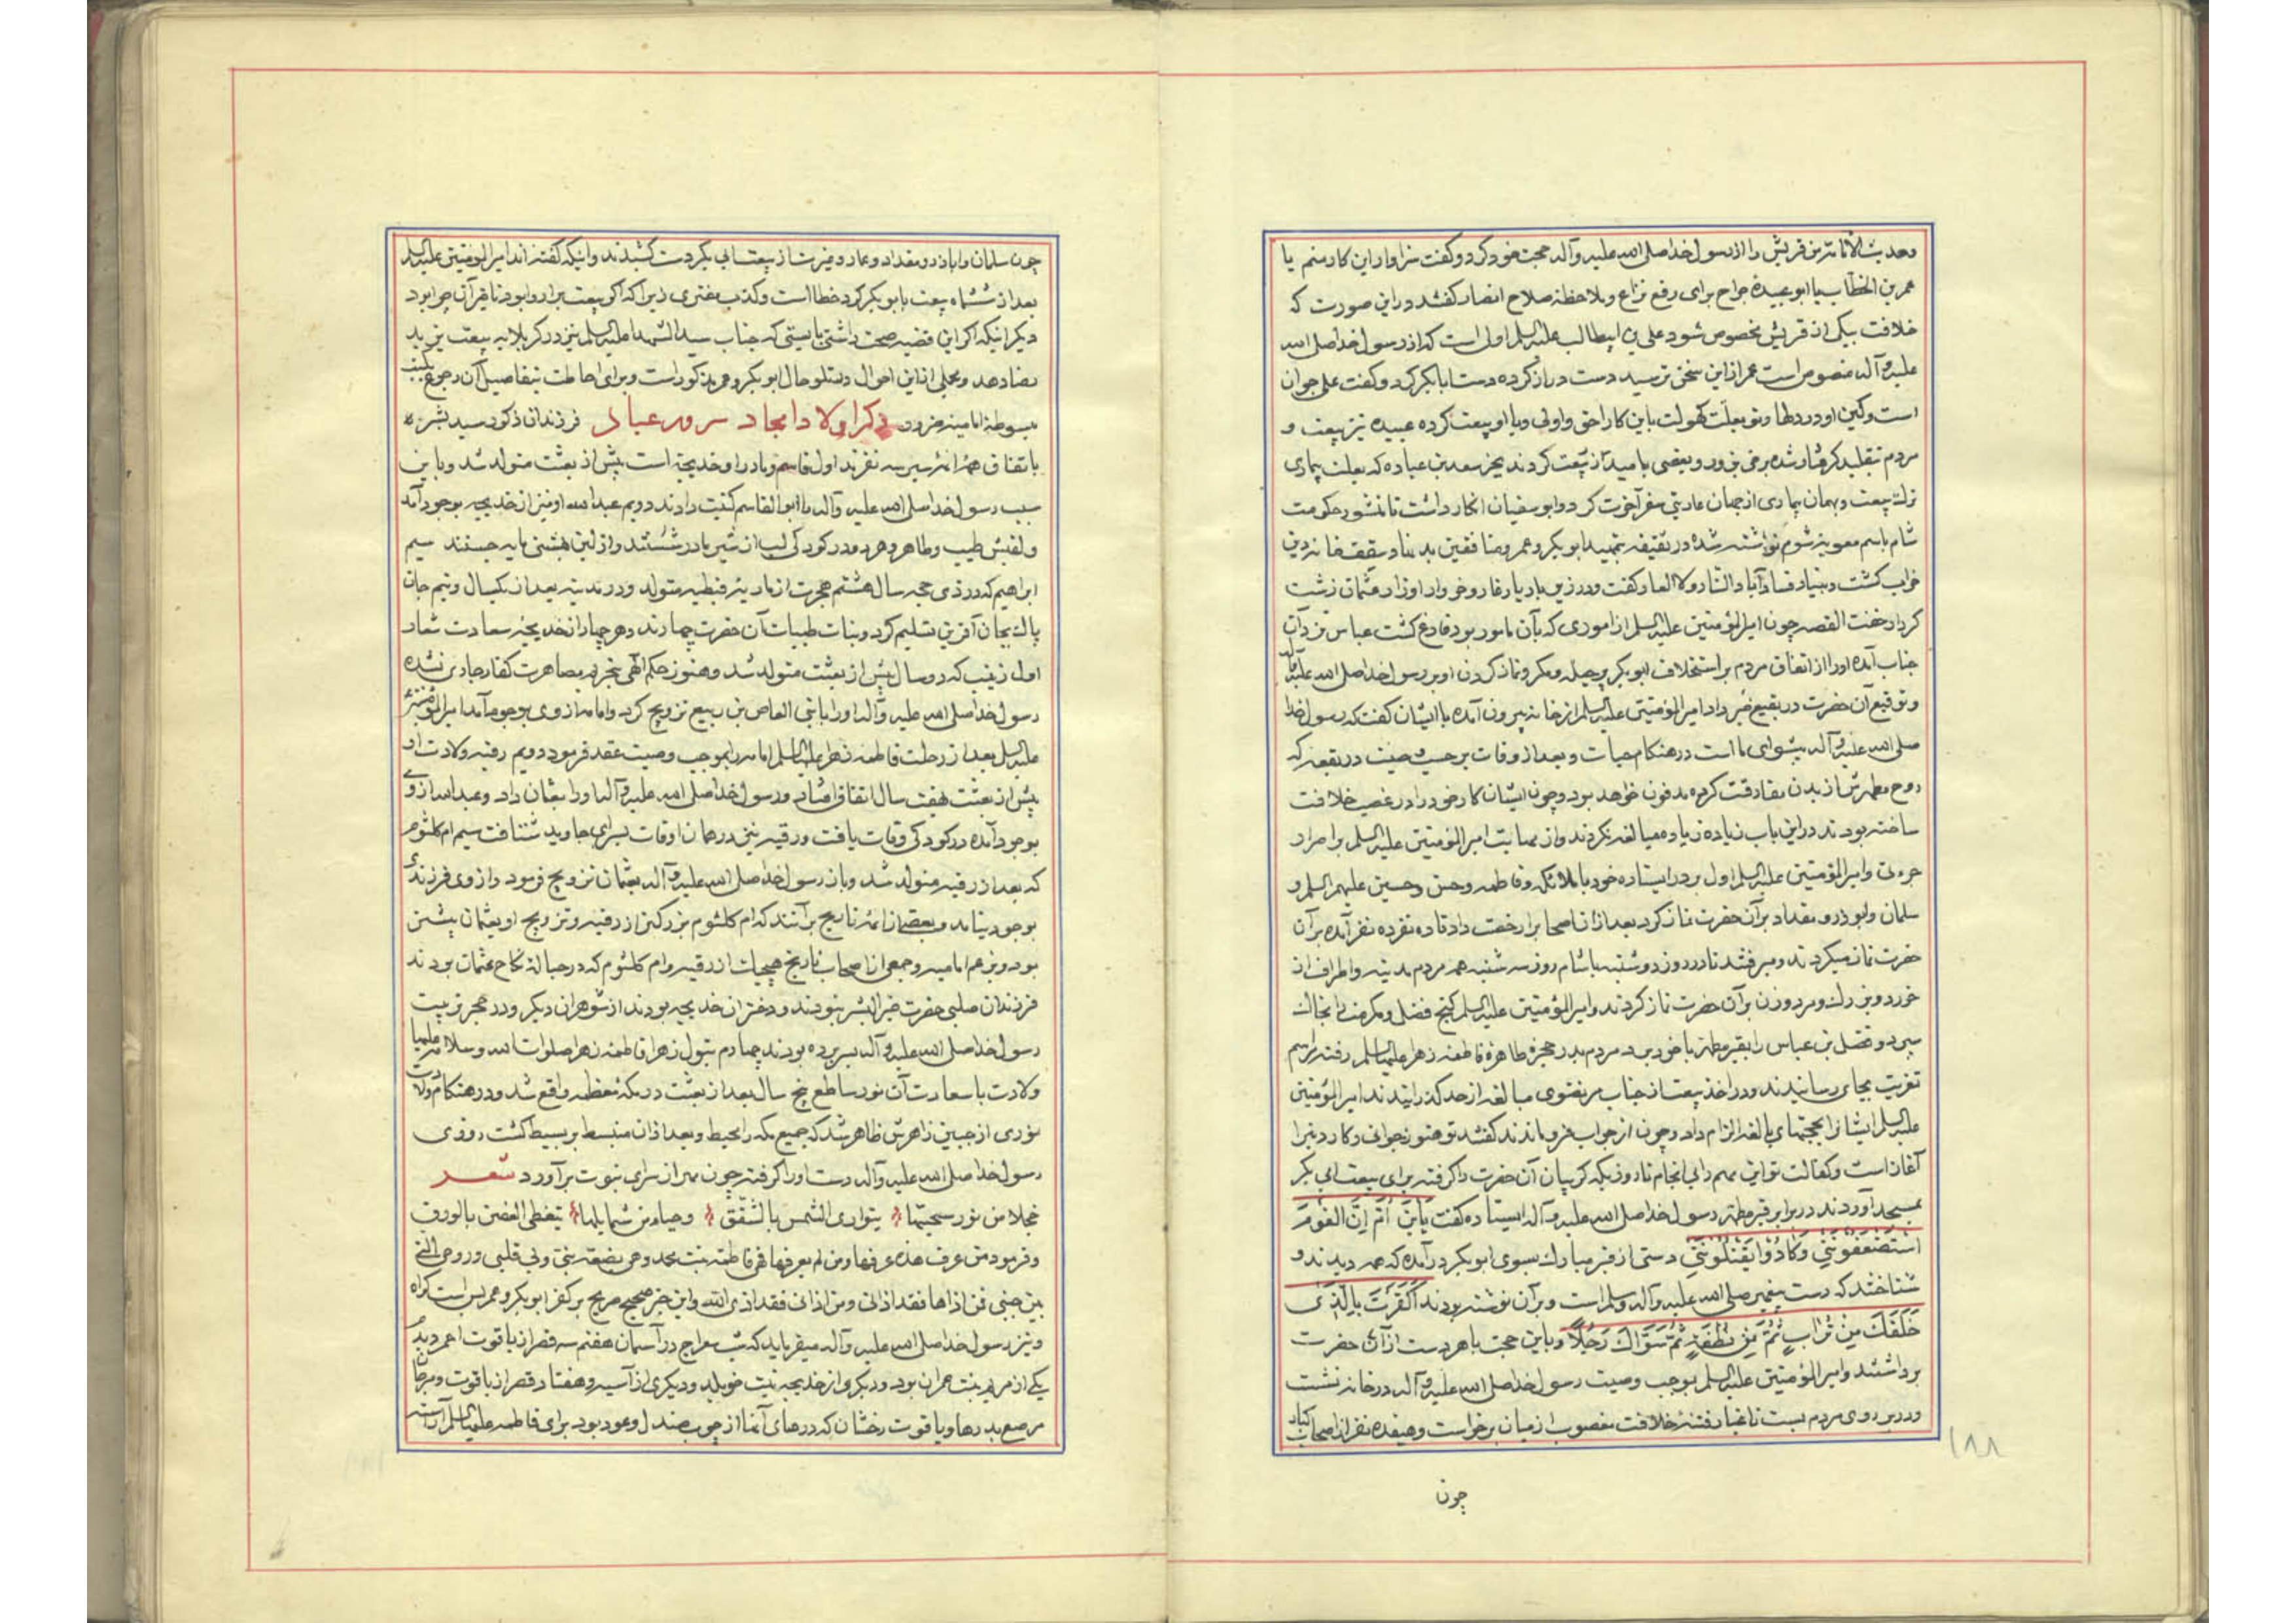 وحدیث الأئمة من قریش را از رسول خدا صلی الله علیه وآله حجت خود کرد و گفت سزاوار این کار منم یا
عمر بن الخطاب یا ابو عبیده جراح برای رفع نزاع و بلاحظه صلاح انصار گفتند در این صورت که
خلافت بیکی از قریش مخصوص شود علی بن ابیطالب علیه السلم اولی است که از رسول خدا صلی الله
علیه وآله منصوص است عمر از این سخن ترسید دست دراز کرده دست ابابکر گرفت و گفت علی جوان
است ولکن او در دها و تو بعلت کهولت باین کار احق و اولی و با او بیعت کرده عبیده نیز بیعت و
مردم تقلید کرده برخی بزور و بعضی بامید از بیعت کردند بجز سعد بن عباده که بعلت بیماری
ترک بیعت و بهمان بیماری از جهان عاریتی سفر آخرت کرد و ابو سفیان انکار داشت تا منشور حکومت
شام باسم معویه شوم نوشته شد در سقیفه بتمهید ابو بکر و عمر و منافقین بد بنیاد سقف خانه دین
خراب گشت و بنیاد فساد آباد النار ولا العار گفت و در زین باد یار غار و خر واد اوزار عثمان زشت
کردار خفت القصه چون امیر المؤمنین علیه السلم از اموری که بآن مامور بود فارغ گشت عباس نزد آن
جناب آمده او را از اتفاق مردم بر استخلاف ابو بکر بحیله و مکر و نماز کردن او بر رسول خدا صلی الله علیه وآله
و توقیع آن حضرت در بقیع خبر داد امیر المؤمنین علیه السلم از خانه بیرون آمده با ایشان گفت که رسول خدا
صلی الله علیه وآله پیشوای ما است در هنگام حیات و بعد از وفات بر حسب وصیت در بقعه که
روح مطهرش از بدن مفارقت کرده مدفون خواهد بود و چون ایشان کار خود را در غصب خلافت
ساخته بودند در این باب زیاده مبالغه نکردند و از ممانعت امیر المؤمنین علیه السلم بر اصرار
جرءتی وامیر المؤمنین علیه السلم اول بر در ایستاده خود با ملائکه و فاطمه و حسن و حسین علیهم السلم و
سلمان و ابوذر و مقداد بر آن حضرت نماز کرد بعد از آن اصحاب را رخصت داد تا ده نفر ده نفر آمده بر آن
حضرت نماز میکردند و میرفتند تا در روز دوشنبه تا شام روز سه شنبه همه مردم مدینه و اطراف از
خورد و بزرک و مرد و زن بر آن حضرت نماز کردند و امیر المؤمنین علیه السلم گنج فضل و مکرمت را بخاک
سپرد و فضل بن عباس را بقبر مطهر با خود برد مردم بدر حجره طاهره فاطمه زهرا علیها السلم رفته مراسم
تعزیت بجای رسانیدند و در اخذ بیعت از جناب مرتضوی مبالغه از حد گذرانیدند امیر المؤمنین
علیه السلم ایشانرا بحجتهای بالغه الزام داد و چون از جواب فرو ماندند گفتند تو هنوز جوانی و کار دنیا را
آغاز است و کفالت تو این مهم را بی انجام تا روزیکه گریبان آن حضرت را گرفته برای بیعت ابی بکر
بمسجد آوردند در برابر قبر مطهر رسول خدا صلی الله علیه وآله ایستاده گفت یَابْنَ أُمَّ اِنَّ القَوْمَ
اسْتَضْعَفُونَنِی وَکَادُوْا یَقْتُلُونَنِی دستی از قبر مبارک بسوی ابو بکر درآمده که همه دیدند و
شناختند که دست پیغمبر صلی الله علیه وآله وسلم است و بر آن نوشته بودند اَکَفَرْتَ بِالَّذِی
خَلَقَکَ مِنْ تُرَابٍ ثُمَّ مِنْ نُطْفَةٍ ثُمَّ سَوَّاکَ رَجُلاً و باین حجت باهر دست از آن حضرت
برداشتند و امیر المؤمنین علیه السلم بموجب وصیت رسول خدا صلی الله علیه وآله در خانه نشست
و در بر روی مردم بست تا غبار فتنه خلافت مغصوب از میان برخواست و هیفده نفر از اصحاب کبار
چون
١٨٨
چون سلمان و اباذر و مقداد و عمار و غیره از بیعت ابی بکر دست کشیدند و اینکه گفته اند امیر المؤمنین علیه السلم
بعد از ششماه بیعت بابو بکر کرد خطا است و کذب مفتری زیرا که اگر بیعت برا روا بود تاخیر آن چرا بود
دیگر اینکه اگر این قضیه صحت داشتی بایستی که جناب سید الشهدا علیه السلم نیز در کربلا به بیعت یزید
رضا دهد و مجملی از این احوال در تلو حال ابو بکر و عمر مذکور است و برای احاطت بتفاصیل آن رجوع بکتب
مبسوطه امامیه ضرور ذکر اولاد امجاد سرور عباد فرزندان ذکور سید بشر که
باتفاق همه اهل سیر سه نفرند اول قاسم و مادر او خدیجه است پیش از بعثت متولد شد و باین
سبب رسول خدا صلی الله علیه وآله را ابو القاسم کنیت دادند دویم عبد الله او نیز از خدیجه بوجود آمد
و لقبش طیب و طاهر و هر دو در کودکی لب از شیر مادر شستند و از لبن بهشتی مایه جستند سیم
ابراهیم که در ذی حجه سال هشتم هجرت از ماریه قبطیه متولد و در مدینه بعد از یکسال و نیم جان
پاک بجان آفرین تسلیم کرد و بنات طیبات آن حضرت چهارند و هر چهار از خدیجه سعادت شعار
اول زینب که دو سال پیش از بعثت متولد شد و هنوز حکم الهی بتحریم مصاهرت کفار جاری نشده
رسول خدا صلی الله علیه وآله او را بابی العاص بن ربیع تزویج کرد و امامه از وی بوجود آمد امیر المؤمنین
علیه السلم بعد از رحلت فاطمه زهرا علیها السلم امامه را بموجب وصیت عقد فرمود دویم رقیه ولادت او
پیش از بعثت بهفت سال اتفاق افتاد و رسول خدا صلی الله علیه وآله او را بعثمان داد و عبد الله از وی
بوجود آمده در کودکی وفات یافت و رقیه نیز در همان اوقات بسرای جاوید شتافت سیم ام کلثوم
که بعد از رقیه متولد شد و باز رسول خدا صلی الله علیه وآله بعثمان تزویج فرمود و از وی فرزندی
بوجود نیامد و بعضی از ائمه تاریخ برآنند که ام کلثوم بزرگتر از رقیه و تزویج او بعثمان پیشتر
بود و بزعم امامیه و جمعی از اصحاب تاریخ رقیه و ام کلثوم که در حباله نکاح عثمان بودند
فرزندان صلبی حضرت خیر البشر نبودند و دختران خدیجه بودند از شوهران دیگر و در حجر تربیت
رسول خدا صلی الله علیه وآله بسر برده بودند چهارم بتول زهرا فاطمه زهرا صلوات الله وسلامه علیها
ولادت با سعادت آن نور ساطع پنج سال بعد از بعثت در مکه معظمه واقع شد و در هنگام ولادت
نوری از جبین زاهرش ظاهر شد که جمیع مکه را محیط و بعد از آن منبسط بر بسیط گشت روزی
رسول خدا صلی الله علیه وآله دست او را گرفته چون مهر از سرای نبوت برآورد شعر
خجلا من نور سحبتها یتواری الشمس بالشفق وحیاء من شمایلها یتغطی الغصن بالورق
و فرمود من عرف هذه عرفها ومن لم یعرفها فهی فاطمة بنت محمد وهی بضعة منی وهی قلبی وروحی التی
بین جنبی فمن اذاها فقد اذانی ومن اذانی فقد اذی الله و این خبر صحیح صریح بر کفر ابو بکر و عمر بس است گواه
و نیز رسول خدا صلی الله علیه وآله میفرماید که شب معراج در آسمان هفتم سه قصر از یاقوت احمر دیدم
یکی از مریم بنت عمران بود و دیگری از خدیجه بنت خویلد و دیگری از آسیه و هفتاد قصر از یاقوت و مرجان
مرصع بدرها و یاقوت رخشان که درهای آنها از چوب صندل و عود بود برای فاطمه علیها السلم آراسته